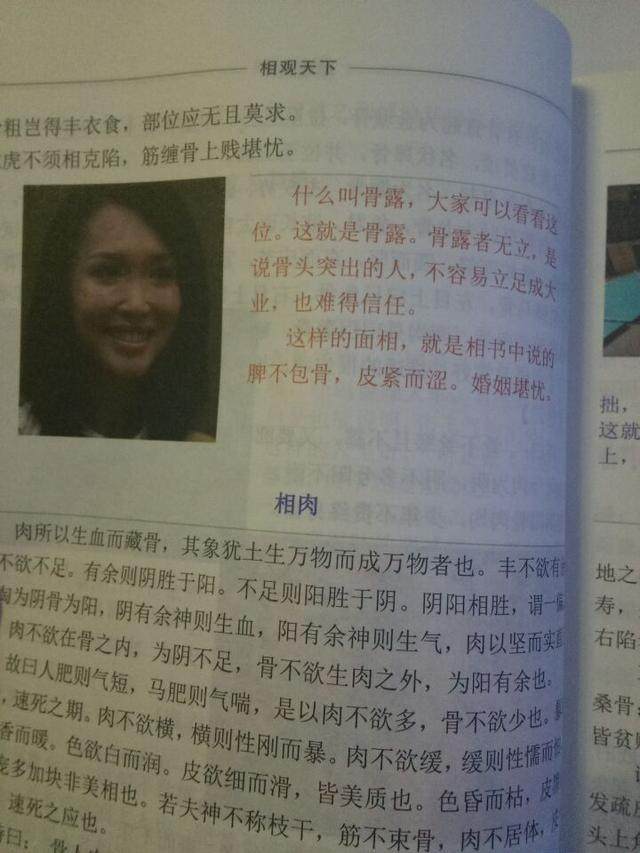 相观天下
粗岂得丰衣食，部位应无且莫求。
虎不须相克陷，筋缠骨上贱堪忧。
什么叫骨露，大家可以看看这
位。这就是骨露。骨露者无立，是
说骨头突出的人，不容易立足成大
业，也难得信任。
这样的面相，就是相书中说的
脾不包骨，皮紧而涩。婚姻堪忧。
相肉
肉所以生血而藏骨，其象犹土生万物而成万物者也。丰不欲有
不欲不足。有余则阴胜于阳。不足则阳胜于阴。阴阳相胜，谓一
为阴骨为阳，阴有余神则生血，阳有余神则生气，肉以坚而实
肉不欲在骨之内，为阴不足，骨不欲生肉之外，为阳有余也。
故曰人肥则气短，马肥则气喘，是以肉不欲多，骨不欲少也。
，速死之期。肉不欲横，横则性刚而暴。肉不欲缓，缓则性懦而
香而暖。色欲白而润。皮欲细而滑，皆美质也。色昏而枯，皮
多加块非美相也。若夫神不称枝干，筋不束骨，肉不居体，
速死之应也。
曰：
拙，
这就
上，
地之
寿，
右陷
桑骨
皆贫
发疏
头上